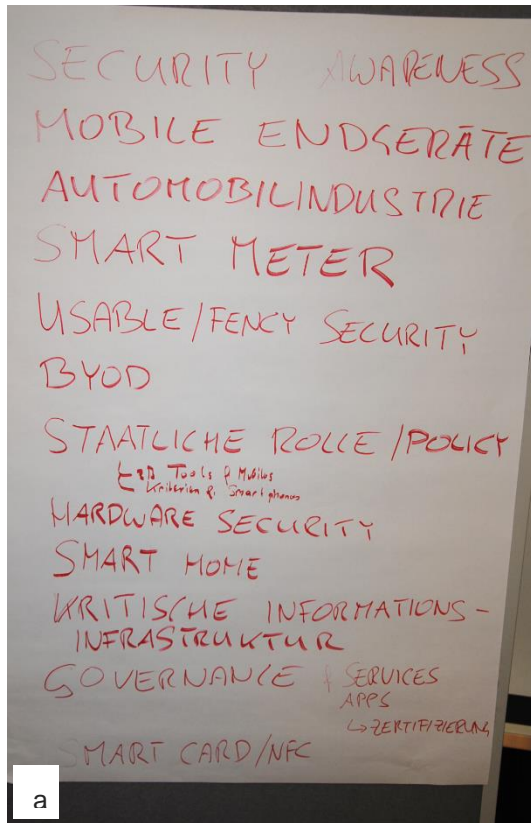 SECURITY AWARENESS
MOBILE ENDGERÄTE
AUTOMOBILINDUSTRIE
SMART METER
USABLE/FENCY SECURITY
BYOD
STAATLICHE ROLLE/POLICY
Tools f Mobiles
Kriterien f. Smartphones
HARDWARE SECURITY
SMART HOME
KRITISCHE INFORMATIONS-
INFRASTRUKTUR
GOVERNANCE f SERVICES
APPS
↳ ZERTIFIZIERUNG
SMART CARD/NFC
a